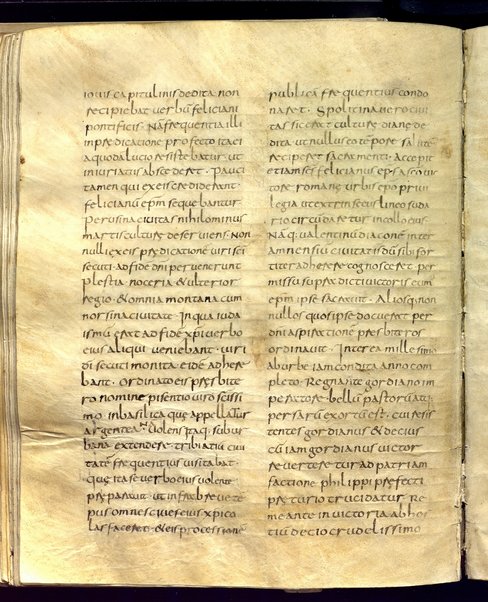 iovis capitulinis dedita non
recipiebat verbū feliciani
pontificis. Nā frequentia illi
in predicatione profecto ita ei
aquodā lucio resistebatur. ut
iniuriatus abscederet. Pauci
tamen qui ex eis crediderant.
felicianū epm sequebantur
Perusina civitas nihilominus
martis culturę deserviens. Non
nulli ex eis predicationē viri sci
secuti. ad fidē dni pervenerunt
Plestia. noceria & ulterior
regio. & omnia montana cum
norsina civitate. In qua iuda
ismū erat ad fidē xpi verbo
eius aliqui veniebant. viri
di secuti monita. & idē adhere
bant. Ordinato eis presbite
ro nomine pisentio viro scissi
mo. in basilica quę appellatur
argentea. Volens itaq. subur
bana extendere. tribiatiū civi
tatē frequentius visitabat.
quę ita se verbo eius violente
preparavit. ut infra breve te
pus omnes cives eius xpico
las faceret. & eis processionē
publicā frequentius condo
naret. Spolitina vero civi
tas sic erat culturę dianę de
dita. ut nullus eo tēpore salutē
reciperet sacramenti. Accepit
etiam scs felicianus eps a sco victo
re romanę urbis epo privi
legia. ut extrinsecus linco suda
rio circūdaretur in collo eius.
Nāq. valentinū diaconē inter
amnensiū civitatis dū sibi for
titer adherere cognosceret. per
missu supradicti victoris eum
epm ipse sacravit. Alios q. non
nullos quos ipse docuerat per
dni aspirationē presbiteros
ordinavit. Interea millesimo
ab urbe iam condita anno com
pleto. Regnante gordiano im
peratore. bellū pastor vati
persarū exortū est. cui resis
tentes gordianus & decius
cū iam gordianus victor
reverteretur ad patriam
factione philippi prefecti
preturio trucidatur. Re
meante in victoria ab hos
tiū decio crudelissimo